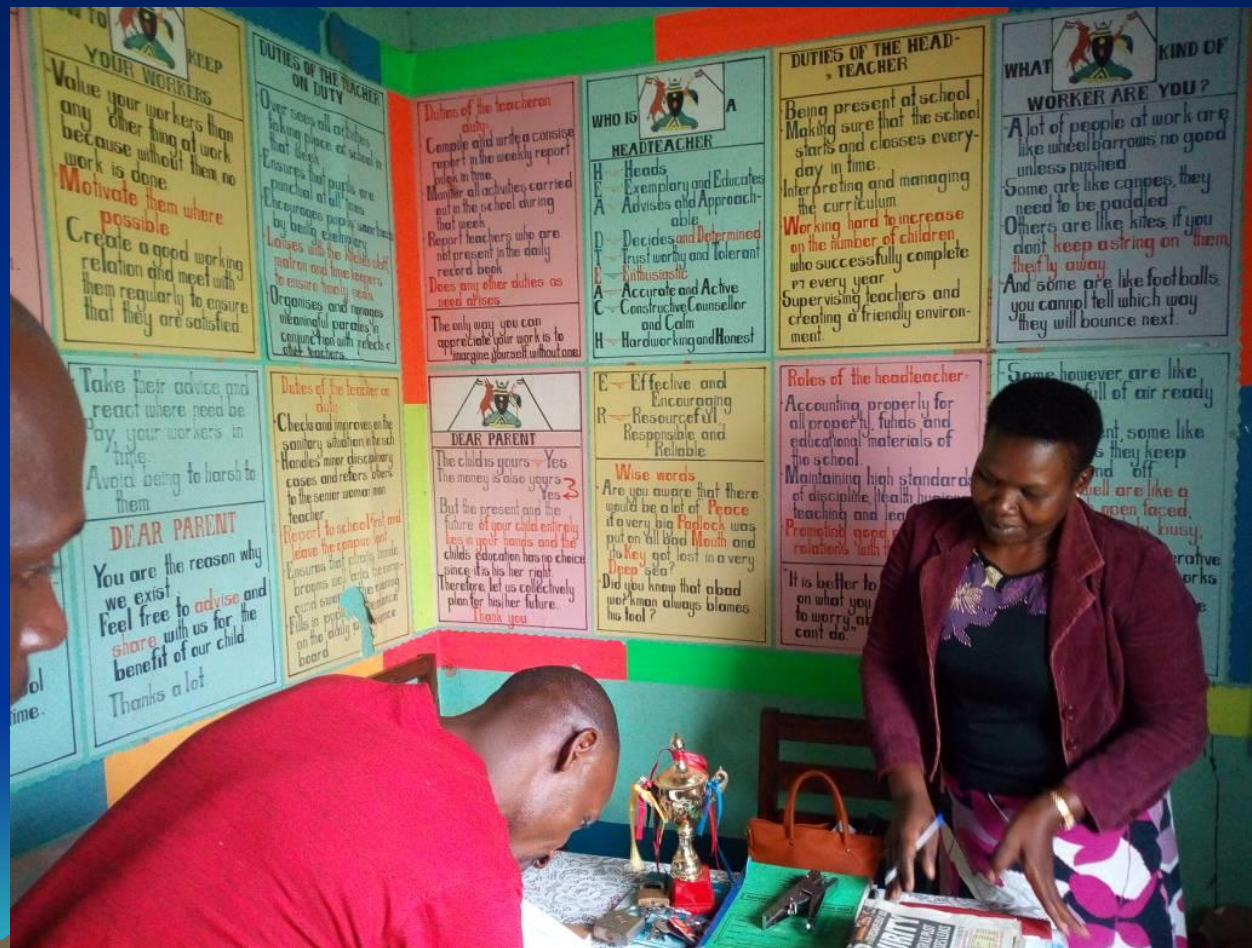 HOW TO KEEP
YOUR WORKERS
Value your workers than
any other thing at work
because without them, no
work is done.
Motivate them where
possible
Create a good working
relation and meet with
them regularly to ensure
that they are satisfied.
DUTIES OF THE TEACHER
ON DUTY
Over sees all activities
taking place at school in
that week
Ensures that pupils are
punctual at all times
Encourages pupils
by being exemplary
Liaises with the kitchen staff,
matron and time keepers
to ensure timely meals
Organises and manages
meaningful parades in
conjunction with
other teachers.
Duties of the teacher on
duty:
Compile and write a consise
report in the weekly report
book in time.
Monitor all activities carried
out in the school during
that week
Report teachers who are
not present in the daily
record book.
Does any other duties as
need arises
The only way you can
appreciate your work is to
imargine yourself without one
WHO IS A
HEADTEACHER
H - Heads
E - Exemplary and Educates
A - Advises and Approach-
able
D - Decides and Determined
T - Trust worthy and Tolerant
E - Enthusiastic
A - Accurate and Active
C - Constructive, Counsellor
and Calm
H - Hardworking and Honest
DUTIES OF THE HEAD-
TEACHER
Being present at school
Making sure that the school
starts and closses every-
day in time.
Interpreting and managing
the curriculum
Working hard to increase
on the number of children
who successfully complete
P7 every year.
Supervising teachers and
creating a friendly environ-
ment.
WHAT KIND OF
WORKER ARE YOU?
A lot of people at work are
like wheelbarrows, no good
unless pushed.
Some are like canoes, they
need to be paddled
Others are like kites, if you
don't keep a string on them,
they fly away.
And some are like footballs,
you cannot tell which way
they will bounce next.
Take their advice and
react where need be
Pay your workers in
time.
Avoid being to harsh to
them
DEAR PARENT
You are the reason why
we exist.
Feel free to advise and
share with us for the
benefit of our child
Thanks a lot.
Duties of the teacher on
duty
Checks and improves on the
sanitary situation in the sch
Handles minor disciplinary
cases and refers others
to the senior woman man
teacher
Report to school first and
leave the campus last
Ensures that
brooms and the comp-
ound
Fills in
on the daily
board
DEAR PARENT
The child is yours - Yes
The money is also yours
Yes
But the present and the
future of your child entirely
lies in your hands and the
childs education has no choice
since it is his her right.
Therefore, let us collectively
plan for his her future.
Thank you
E - Effective and
Encouraging
R - Resourceful,
Responsible and
Reliable
Wise words
Are you aware that there
would be a lot of Peace
if a very big Padlock was
put on all Bad Mouth and
its Key got lost in a very
Deep sea?
Did you know that a bad
workman always blames
his tool?
Roles of the headteacher:
Accounting properly for
all property, funds and
educational materials of
the school.
Maintaining high standards
of discipline, health
teaching and
Promoting good
relations with
"It is better to
on what you
to worry
cant do."
Some however, are like
full of air ready
some like
they keep
off
are like a
open faced,
busy,